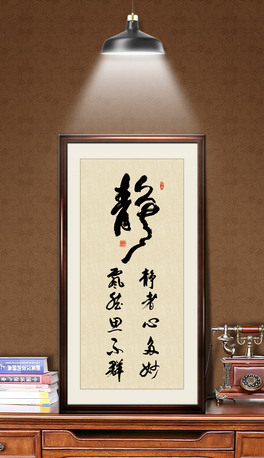 静
静者心多妙
飘然思不群